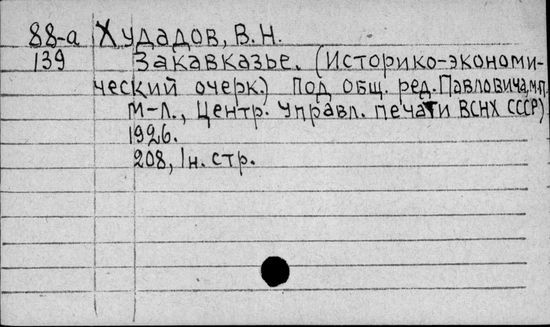 88-а Худадов, В.Н.
139 Закавказье. (Историко-экономи-
ческий очерк.) Под общ. ред. Павловича, М.П.
М-Л., Центр. управл. печати ВСНХ СССР)
1926.
208, 1н. стр.